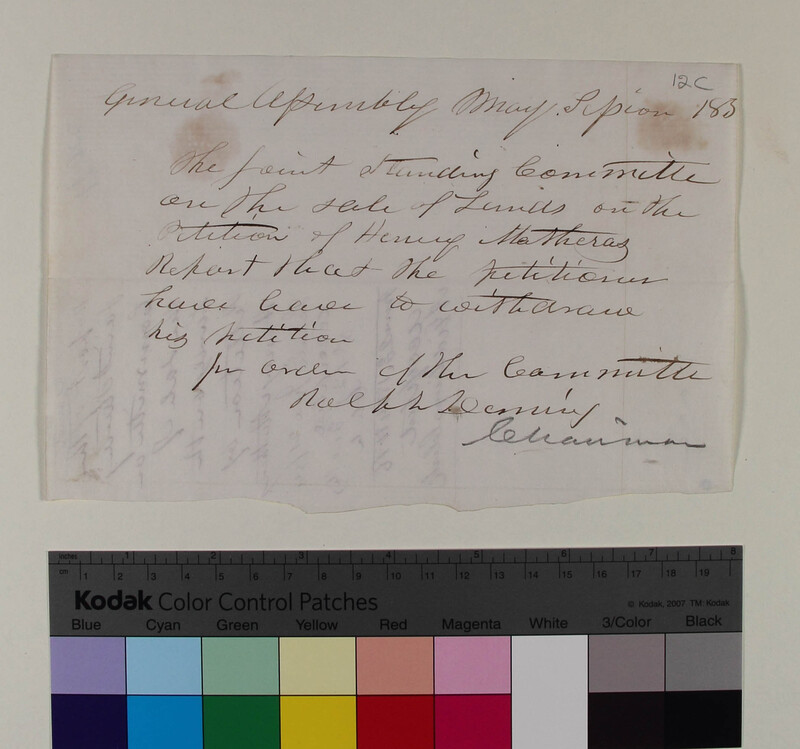 12C
General Assembly May Session 185
The joint standing Committe
on the sale of Lands on the
Petition of Henry Matheras
Report that the petitioner
have leave to withdraw
his petition
pr order of the Committe
Ralph Deming
Chairman
inches 1 2 3 4 5 6 7 8
cm 1 2 3 4 5 6 7 8 9 10 11 12 13 14 15 16 17 18 19
Kodak Color Control Patches © Kodak, 2007 TM: Kodak
Blue Cyan Green Yellow Red Magenta White 3/Color Black